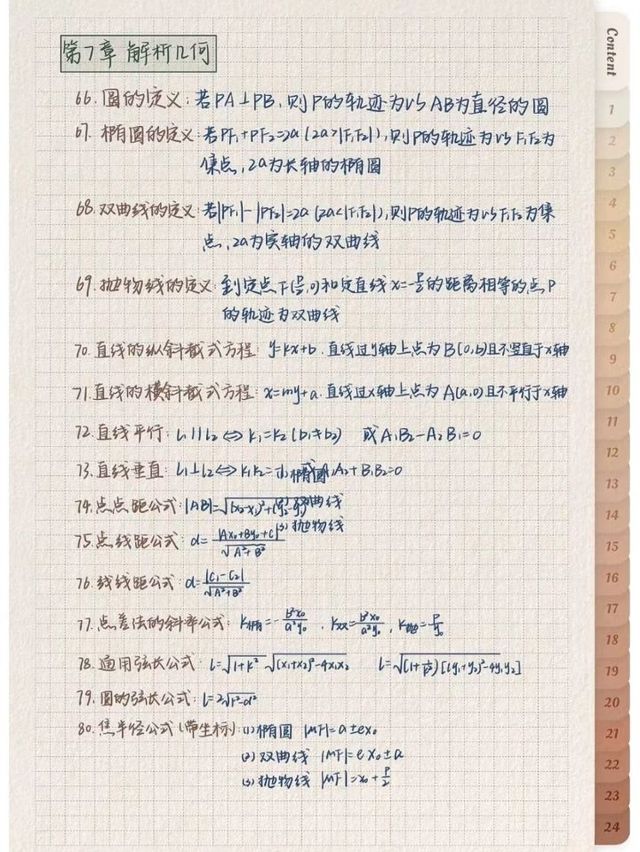 第7章 解析几何
66. 圆的定义: 若PA⊥PB, 则P的轨迹为以AB为直径的圆
67. 椭圆的定义: 若PF₁+PF₂=2a (2a>|F₁F₂|), 则P的轨迹为以F₁F₂为
焦点, 2a为长轴的椭圆
68. 双曲线的定义: 若|PF₁|-|PF₂|=2a (2a<|F₁F₂|), 则P的轨迹为以F₁F₂为焦
点, 2a为实轴的双曲线
69. 抛物线的定义: 到定点F(p/2,0)和定直线x=-p/2的距离相等的点P
的轨迹为双曲线
70. 直线的纵斜截式方程: y=kx+b. 直线过y轴上点为B(0,b)且不竖直于x轴
71. 直线的横斜截式方程: x=my+a. 直线过x轴上点为A(a,0)且不平行于x轴
72. 直线平行: l₁∥l₂⇔k₁=k₂ (b₁≠b₂) 或A₁B₂-A₂B₁=0
73. 直线垂直: l₁⊥l₂⇔k₁k₂= 或A₁A₂+B₁B₂=0
(1) 椭圆
74. 点点距公式: |AB|=√(x₂-x₁)²+(y₂-y₁)²
(2) 双曲线
(3) 抛物线
75. 点线距公式: d=|Ax₀+By₀+C|/√A²+B²
76. 线线距公式: d=|C₁-C₂|/√A²+B²
77. 点差法的斜率公式: k椭=-b²x₀/a²y₀ , k双=b²x₀/a²y₀, k抛=p/y₀
78. 适用弦长公式: l=√1+k² √(x₁+x₂)²-4x₁x₂ l=√(1+1/k²)[(y₁+y₂)²-4y₁y₂]
79. 圆的弦长公式: l=2√r²-d²
80. 焦半径公式(带坐标): (1) 椭圆 |MF|=a±ex₀
(2) 双曲线 |MF|=ex₀±a
(3) 抛物线 |MF|=x₀+p/2
Content
1
2
3
4
5
6
7
8
9
10
11
12
13
14
15
16
17
18
19
20
21
22
23
24